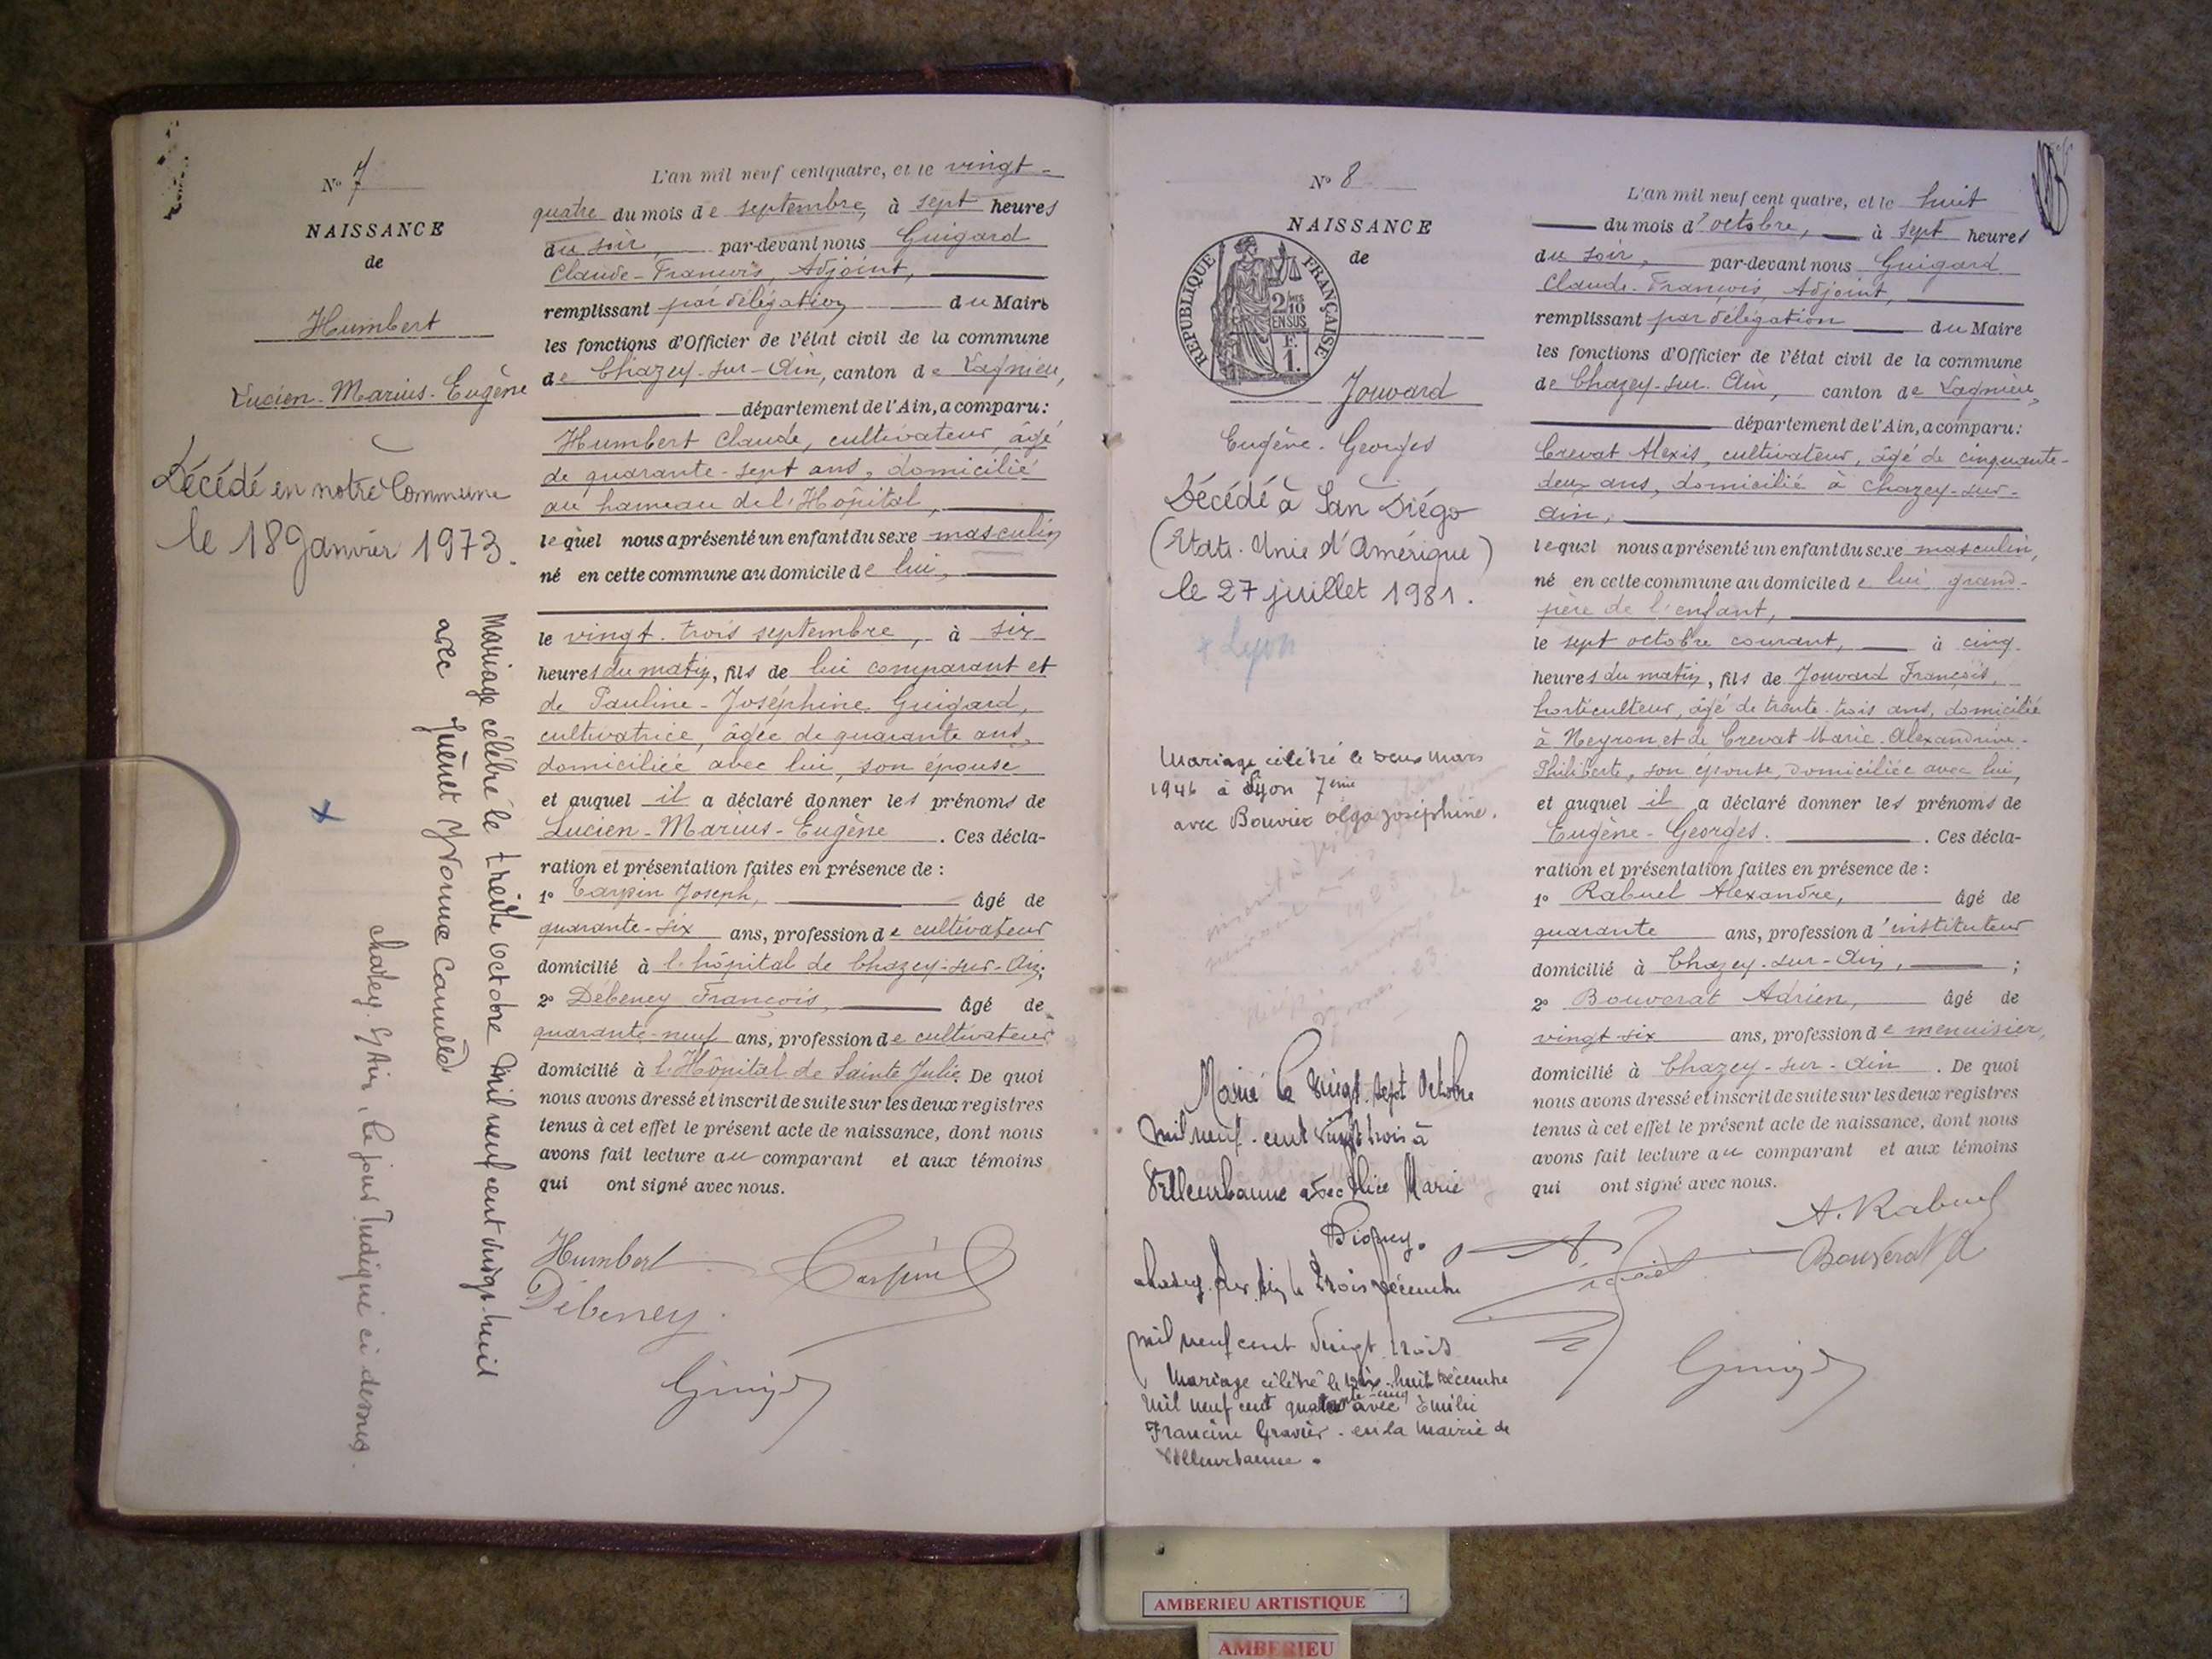 N° 7
NAISSANCE
de
Humbert
Lucien-Marius-Eugène
Décédé en notre Commune
le 18 Janvier 1973.
Mariage célébré le treize octobre mil neuf cent vingt-huit
avec Yvonne
le jour indiqué ci dessus.
L'an mil neuf cent quatre, et le vingt-
quatre du mois de septembre, à sept heures
du soir, par-devant nous Guigard
Claude-François, Adjoint,
remplissant par délégation du Maire
les fonctions d'Officier de l'état civil de la commune
de Chazey-sur-Ain, canton de Lagnieu,
département de l'Ain, a comparu:
Humbert Claude, cultivateur, âgé
de quarante-sept ans, domicilié
au hameau de l'Hôpital,
lequel nous a présenté un enfant du sexe masculin
né en cette commune au domicile de lui,
le vingt-trois septembre, à six
heures du matin, fils de lui comparant et
de Pauline-Joséphine Guigard,
cultivatrice, âgée de quarante ans,
domiciliée avec lui, son épouse
et auquel il a déclaré donner les prénoms de
Lucien-Marius-Eugène. Ces décla-
ration et présentation faites en présence de :
1° Carpin Joseph, âgé de
quarante-six ans, profession de cultivateur
domicilié à l'hôpital de Chazey-sur-Ain;
2° Débeney François, âgé de
quarante-neuf ans, profession de cultivateur
domicilié à l'Hôpital de Sainte Julie. De quoi
nous avons dressé et inscrit de suite sur les deux registres
tenus à cet effet le présent acte de naissance, dont nous
avons fait lecture au comparant et aux témoins
qui ont signé avec nous.
Humbert Carpin
Débeney.
Guigard
N° 8
NAISSANCE
de
REPUBLIQUE FRANÇAISE
2/10
EN SUS
F.
1.
Jouvard
Eugène-Georges
Décédé à San Diégo
(Etats-Unie d'Amérique)
le 27 juillet 1981.
+ Lyon
Mariage célébré le deux mars
1946 à Lyon 7ème
avec Bouvier Olga Joséphine.
Marié le vingt-sept octobre
mil neuf-cent vingt trois à
Villeurbanne avec Alice Marie
Chazey sur Ain le trois décembre
mil neuf cent vingt trois
Mariage célébré le dix-huit décembre
mil neuf cent avec Emilie
Francine Gravier - en la mairie de
Villeurbanne.
L'an mil neuf cent quatre, et le huit
du mois d'octobre, à sept heures
du soir, par-devant nous Guigard
Claude-François, Adjoint,
remplissant par délégation du Maire
les fonctions d'Officier de l'état civil de la commune
de Chazey-sur-Ain, canton de Lagnieu,
département de l'Ain, a comparu:
Crevat Alexis, cultivateur, âgé de cinquante-
deux ans, domicilié à Chazey-sur-
Ain,
lequel nous a présenté un enfant du sexe masculin,
né en cette commune au domicile de lui grand-
père de l'enfant,
le sept octobre courant, à cinq
heures du matin, fils de Jouvard François,
horticulteur, âgé de trente-trois ans, domicilié
à Neyron et de Crevat Marie-Alexandrine-
Philiberte, son épouse, domiciliée avec lui,
et auquel il a déclaré donner les prénoms de
Eugène-Georges. Ces décla-
ration et présentation faites en présence de :
1° Rabuel Alexandre, âgé de
quarante ans, profession d'instituteur
domicilié à Chazey-sur-Ain, ;
2° Bouverat Adrien, âgé de
vingt-six ans, profession de menuisier,
domicilié à Chazey-sur-Ain. De quoi
nous avons dressé et inscrit de suite sur les deux registres
tenus à cet effet le présent acte de naissance, dont nous
avons fait lecture au comparant et aux témoins
qui ont signé avec nous.
A. Rabuel
Bouverat A
Guigard
AMBERIEU ARTISTIQUE
AMBERIEU